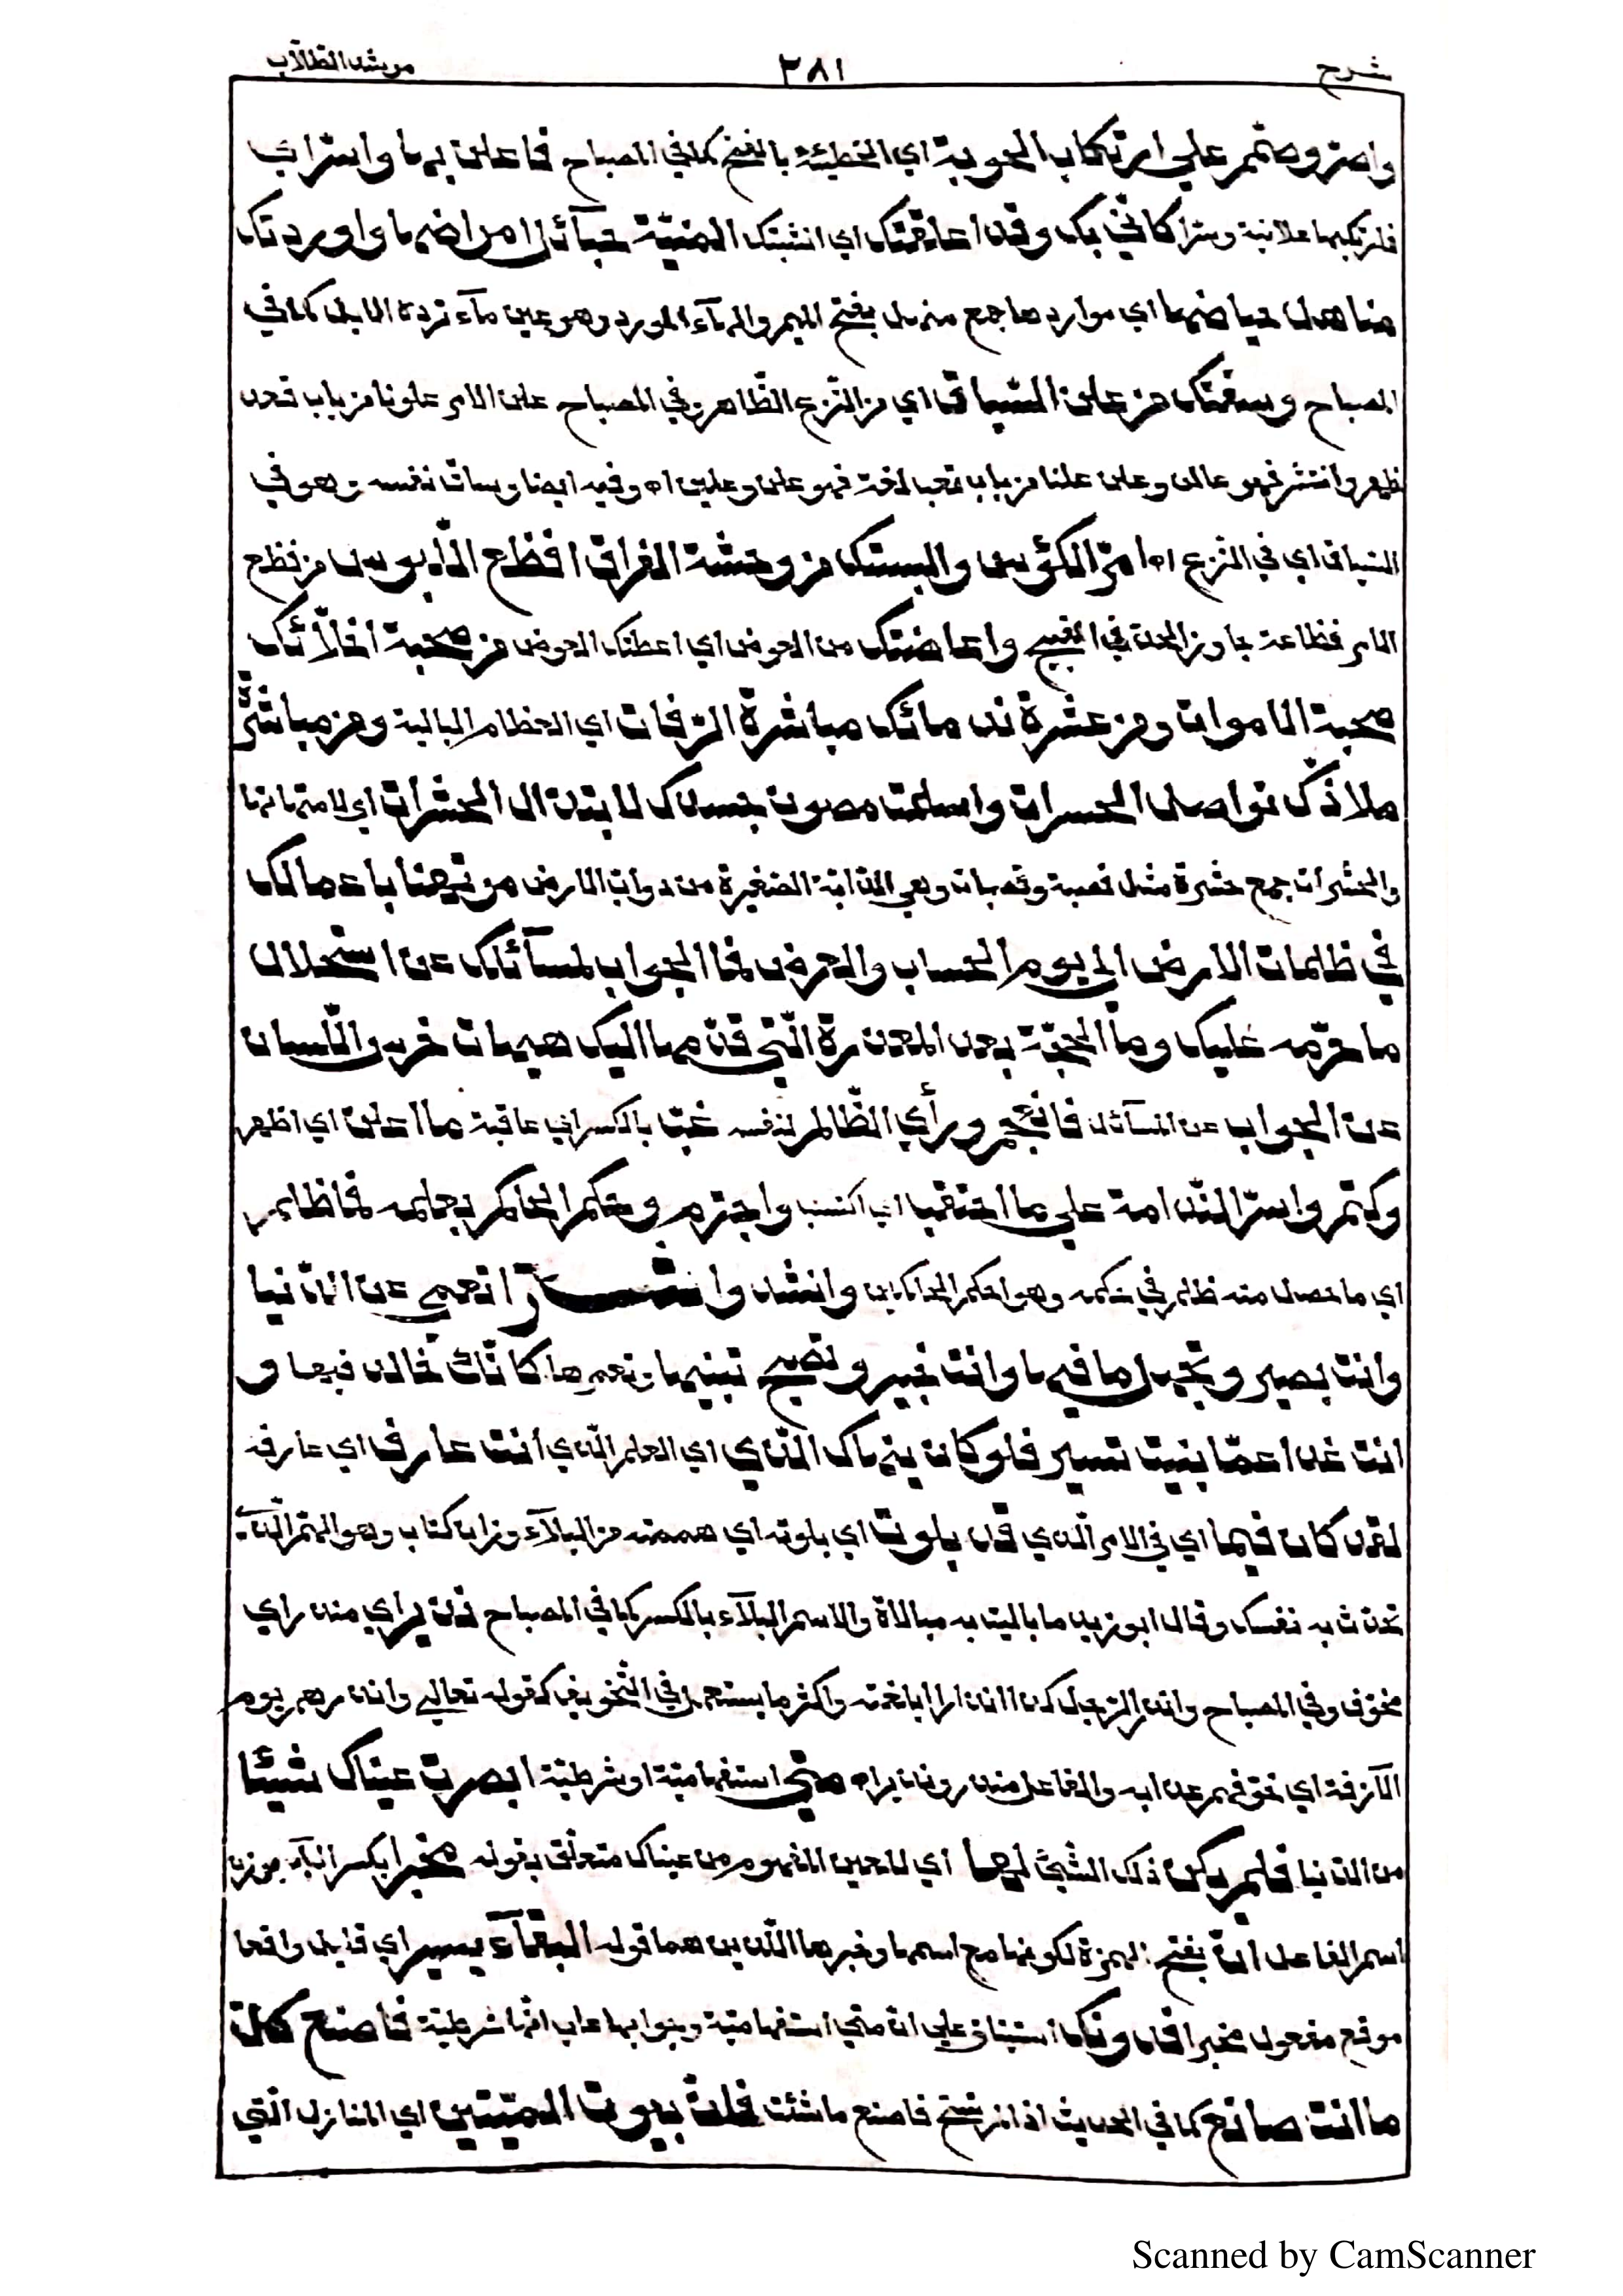 شرح ٢٨١ مرشد الطلّاب
واصرّ وصمّم علي ارتكاب الحوبة اي الخطيئة بالفتح كما في المصباح فاعلن بها واسترابي
فلتركبها علانية وسرّا كأنّي بك وقد اعلقتك اي انشبتك المنيّة حبآئل امراضها واوردتك
مناهل حياضها اي مواردها جمع منهل بفتح الميم والهآء المورد وهو عين مآء ترده الابل كما في
المصباح وسقتك من علن السّياق اي من النّزع الظّاهر في المصباح علن الامر علونا من باب قعد
ظهر وانتشر فهو عالن وعلن علنا من باب تعب لغة فهو علن وعلين اه وفيه ايضا وساق نفسه وهو في
السّياق اي في النّزع اه امرّ الكؤس والبستك من وحشة الفراق افظع اللّبوس من فظع
الامر فظاعة جاوز الحدّ في القبح واعاضتك من العوض اي اعطتك العوض من صحبة اخلّائك
صحبة الاموات ومن عشرة ندمائك مباشرة الرّفات اي العظام البالية ومن مباشرة
ملاذّك تواصل الحسرات واسلمت مصون جسدك لابتذال الحشرات اي لامتهانها
والحشرات جمع حشرة مثل قصبة وقصبات وهي الدّابّة الصّغيرة من دوابّ الارض مرتهنا باعمالك
في ظلمات الارض الي يوم الحساب والعرض فما الجواب لمسآئلك عن استحلال
ما حرّمه عليك وما الحجّة بعد المعذرة الّتي قدّمها اليك هيهات خرس واللّسان
عن الجواب عن المسآئل فانعجم ورأي الظّالم لنفسه غبّ بالكسر اي عاقبة ما اعلن اي اظهر
وكتم واسرّ النّدامة علي ما احتقب اي اكتسب واجترم وحكم الحاكم بعلمه فما ظلم
اي ما حصل منه ظلم في حكمه وهو احكم الحاكمين وانشد وا شـــعر اتعمي عن الدّنيا
وانت بصير وتجهل ما فيها وانت خبير وتصبح تبنيها وتعمرها كأنّك خالد فيها و
انت غدا عمّا بنيت تسير فلو كان ينهاك الّذي اي العلم الّذي انت عارف اي عارفه
لقد كان فيما اي في الامر الّذي قد بلوت اي بلوته اي هممته من البلآء وزان كتاب وهو الهمّ الّذي
تحدّث به نفسك وقال ابو زيد ما باليت به مبالاة والاسم البلآء بالكسر كما في المصباح نذير اي منذر اي
مخوّف وفي المصباح وانذر الرّجل كذا انذارا ابلغته واكثر ما يستعمل في التّخويف كقوله تعالي وانذرهم يوم
الآزفة اي خوّفهم عذابه والفاعل منذر ونذير اه متي استفهاميّة او شرطيّة ابصرت عيناك شيئا
من الدّنيا فلم يكن ذلك الشّيء لها اي للعين المفهوم من عيناك متعلّق بقوله مخبرا بكسر البآء بوزن
اسم الفاعل انّ بفتح الهمزة لكونها مع اسمها وخبرها اللّذين هما قوله البقآء يسير اي قليل واقعا
موقع مفعول مخبرا فدونك استيناف علي انّ متي استفهاميّة وجوابها علي انّها شرطيّة فاصنع كلّ
ما انت صانع كما في الحديث اذا لم تستح فاصنع ما شئت فانّ بيوت الميّتين اي المنازل الّتي
Scanned by CamScanner